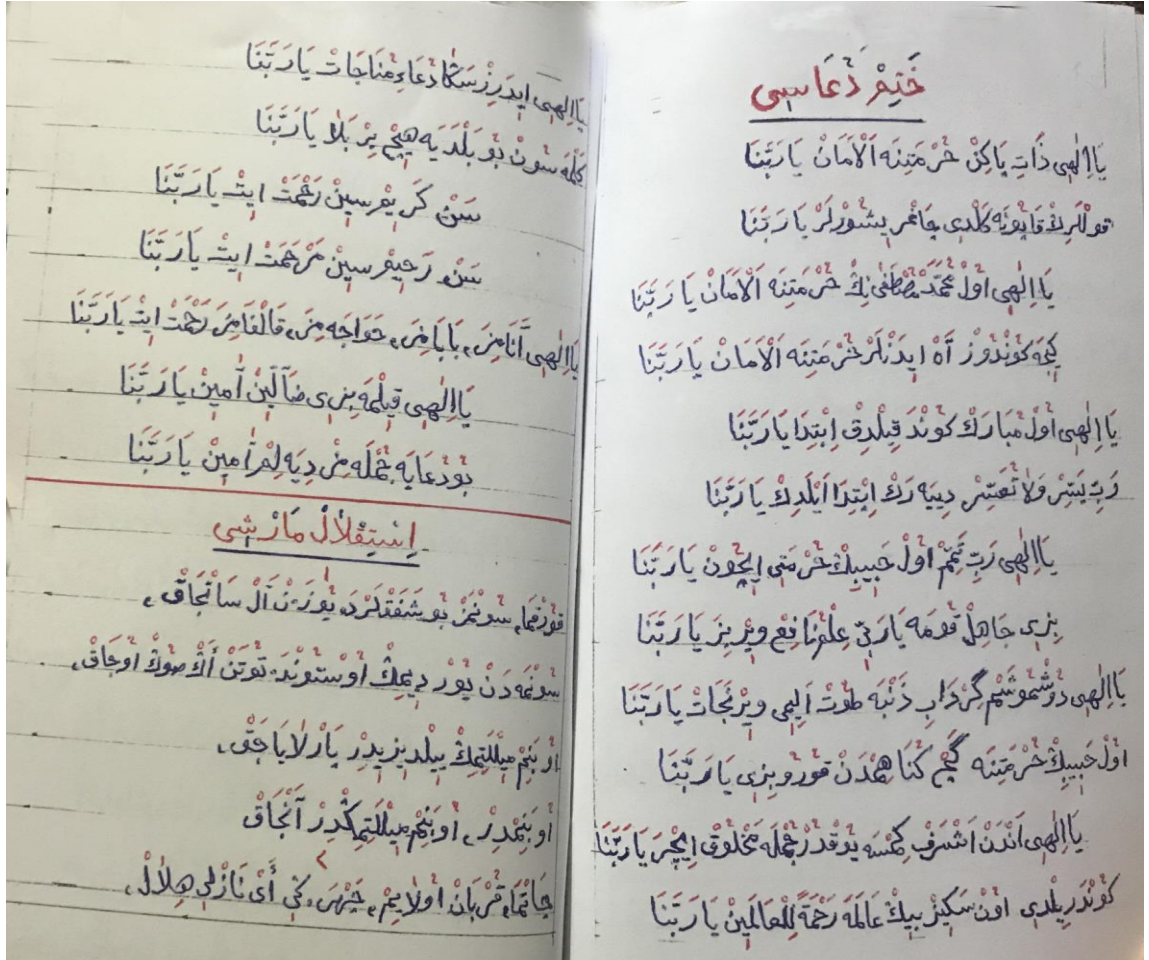 خَتِمْ دُعَاسِى
يَا اِلٰهِى ذَاتِ پَاكِنْ حُرْمَتِنَه اَلْاَمَانْ يَا رَبَّنَا
قوللَرِڭ قَاپُويَه كَلْدِى چَاغْرِيشُورْلَرْ يَا رَبَّنَا
يَا اِلٰهِى اَوَلْ مُحَمَّدْ مُصْطَفٰى نِڭ حُرْمَتِنَه اَلْاَمَانْ يَا رَبَّنَا
كِيجَه كُونْدُوزْ آهْ اِيدَنْلَرْ حُرْمَتِنَه اَلْاَمَانْ يَا رَبَّنَا
يَا اِلٰهِى اُولْ مُبَارَكْ كُونْدَه قِيلْدِقْ اِبْتِدَا يَا رَبَّنَا
رَبِّ يَسِّرْ وَلَا تُعَسِّرْ دِييَه رَكْ اِبْتِدَا اَيْلَدِكْ يَا رَبَّنَا
يَا اِلٰهِى رَبِّ تَمِّمْ اُولْ حَبِيبِڭ حُرْمَتِى اِيچُونْ يَا رَبَّنَا
بِزِى جَاهِلْ قُومَه يَا رَبِّى عِلْمِ نَافِعْ وِيرْ بِزَه يَا رَبَّنَا
يَا اِلٰهِى دُوشْمُوشَمْ گِرْدَابِ ذَنْبَه طُوتْ اَلِيمِى وِيرْ نَجَاتْ يَا رَبَّنَا
اُولْ حَبِيبِڭ حُرْمَتِنَه گَچْ كُنَاهِمْدَنْ قُورُو بِزِى يَا رَبَّنَا
يَا اِلٰهِى اَنْدَنْ اَشْرَفْ كِمْسَه يُوقْدُرْ جُمْلَه مَخْلُوقْ اِيچْرَه يَا رَبَّنَا
كُونْدَرِيلْدِى اُونْ سَكِيزْ بِيڭ عَالَمَه رَحْمَةً لِلْعَالَمِينْ يَا رَبَّنَا
يَا اِلٰهِى اِيدَرِزْ سَڭَا دُعَاءِ مُنَاجَاتْ يَا رَبَّنَا
كَلْمَه سُونْ بُو بَلْدَه يَه هِيچْ بِرْ بَلَا يَا رَبَّنَا
سَنْ كَرِيمْ سِينْ رَحْمَتْ اِيتْ يَا رَبَّنَا
سَنْ رَحِيمْ سِينْ مَرْحَمَتْ اِيتْ يَا رَبَّنَا
يَا اِلٰهِى آنَا مِزَه، بَابَا مِزَه، خَوَاجَه مِزَه، قَالْفَا مِزَه رَحْمَتْ اِيتْ يَا رَبَّنَا
يَا اِلٰهِى قِيلْمَه بِزِى ضَآلِّينْ آمِينْ يَا رَبَّنَا
بُو دُعَايَه جُمْلَه مِزْ دِيَه لِمْ آمِينْ يَا رَبَّنَا
اِسْتِقْلَالْ مَارْشِى
قُورْقْمَا، سُونْمَزْ بُو شَفَقْلَرْدَه يُوزَنْ آلْ سَانْجَاقْ،
سُونْمَه دَنْ يُورْدِيمِڭ اُوسْتُونْدَه تُوتَنْ اَڭ صُوڭ اُوجَاقْ،
اُو بَنِمْ مِيلْلَتِمِڭ يِيلْدِيزِيدِرْ پَارْلَايَاجَقْ،
اُو بَنِمْدِرْ، اُو بَنِمْ مِيلْلَتِمِڭْدِرْ آنْجَاقْ
چَاتْمَا، قُرْبَانْ اُولَايِمْ، چَهْرَه ڭِى أَىْ نَازْلِى هِلَالْ،